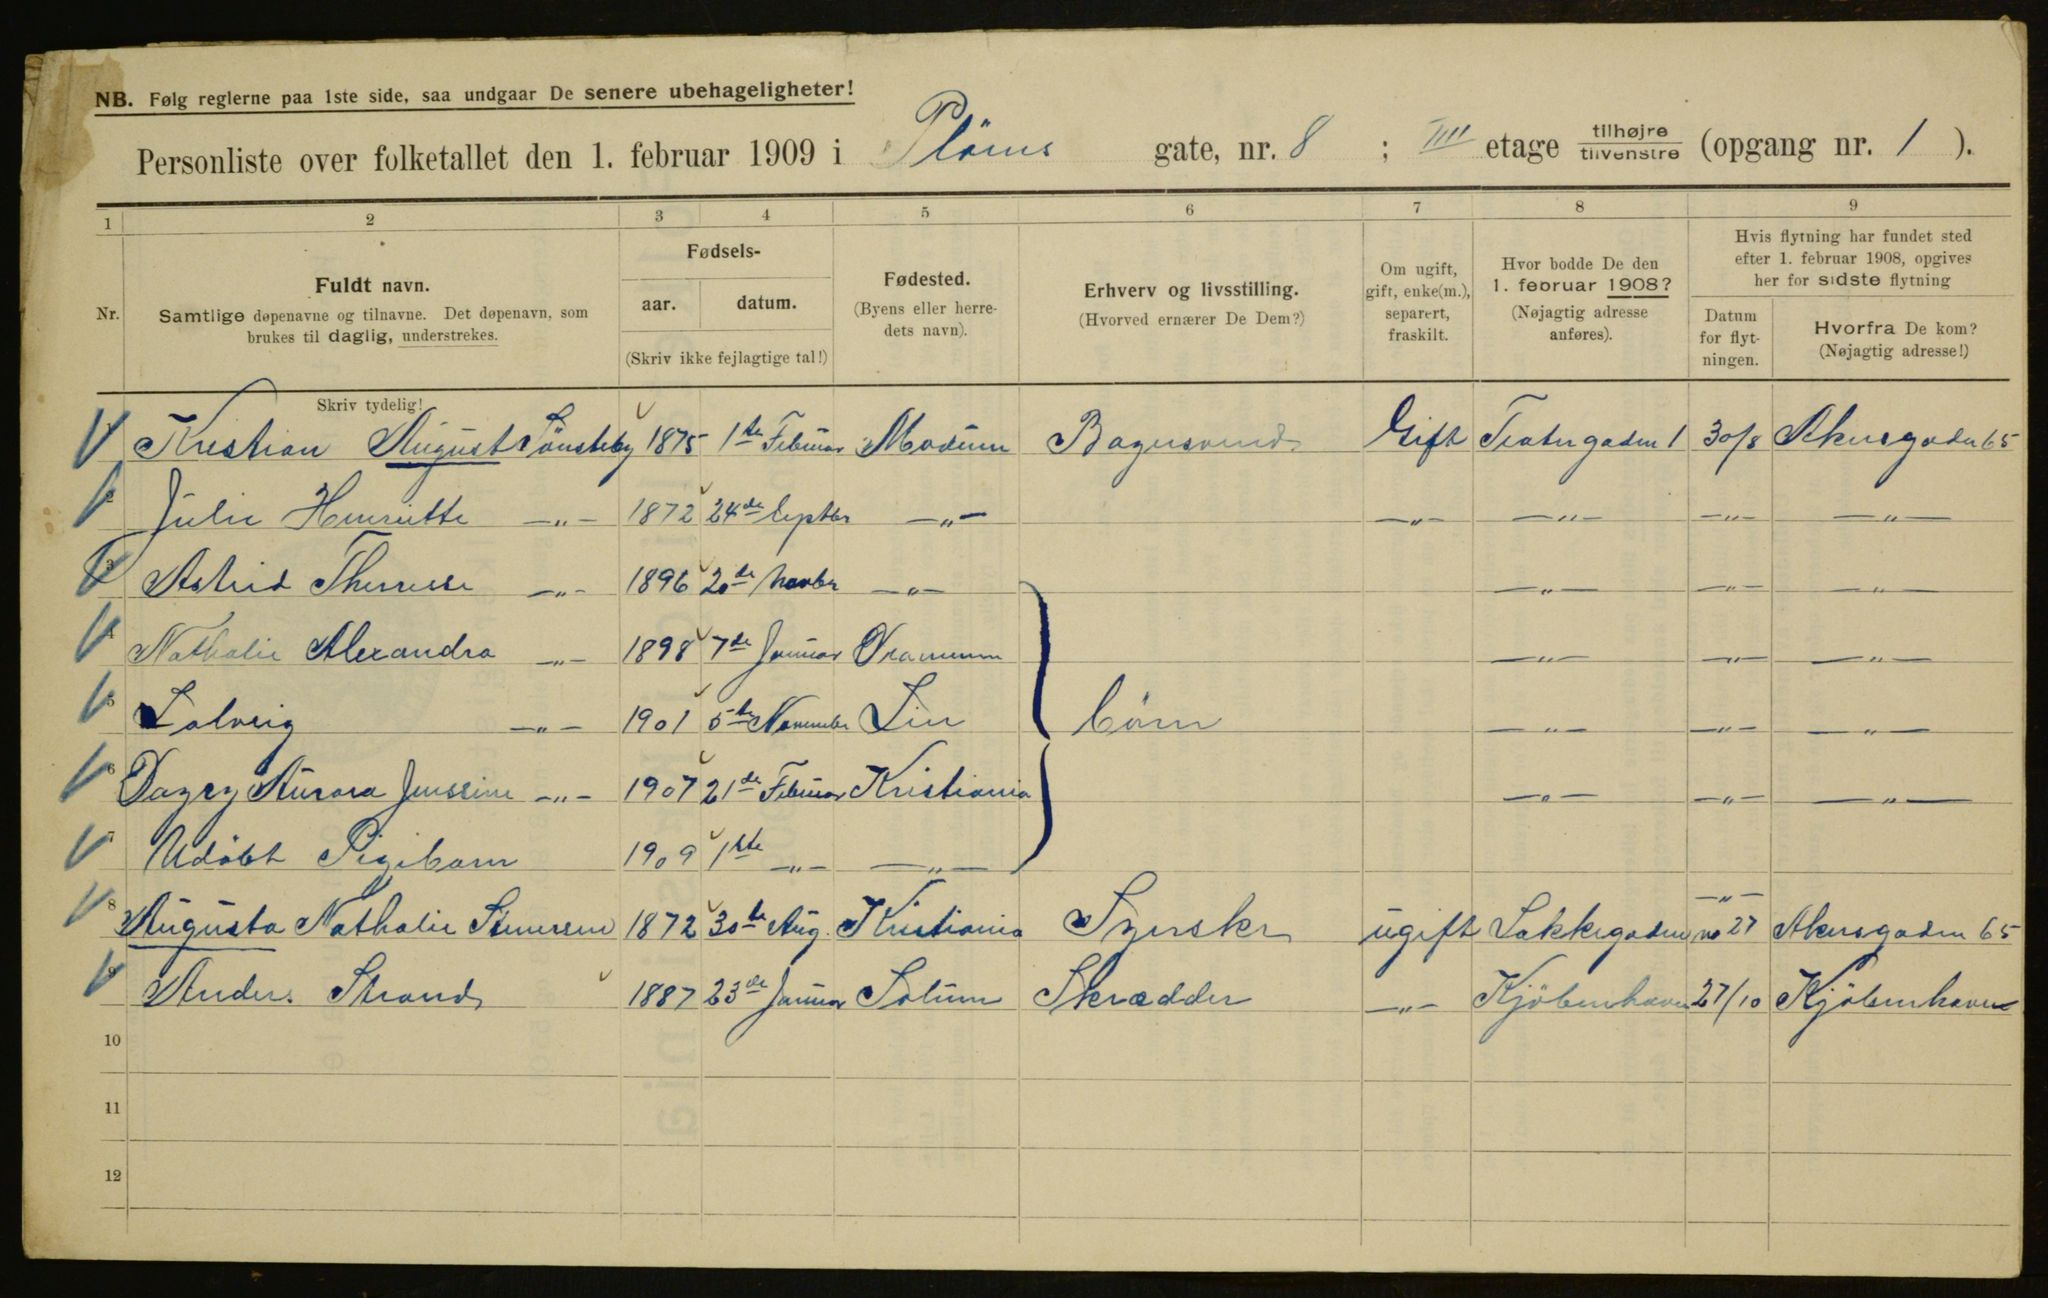 NB. Følg reglerne paa 1ste side, saa undgaar De senere ubehageligheter!
Personliste over folketallet den 1. februar 1909 i Plöens gate, nr. 8 ; IIII etage tilhøjre / tilvenstre (opgang nr. 1 ).
1 2 3 4 5 6 7 8 9
Nr.
Fuldt navn.
Samtlige døpenavne og tilnavne. Det døpenavn, som
brukes til daglig, understrekes.
Skriv tydelig!
Fødsels-
aar. datum.
(Skriv ikke fejlagtige tal!)
Fødested.
(Byens eller herre-
dets navn).
Erhverv og livsstilling.
(Hvorved ernærer De Dem?)
Om ugift,
gift, enke(m.),
separert,
fraskilt.
Hvor bodde De den
1. februar 1908?
(Nøjagtig adresse
anføres).
Hvis flytning har fundet sted
efter 1. februar 1908, opgives
her for sidste flytning
Datum
for flyt-
ningen.
Hvorfra De kom?
(Nøjagtig adresse!)
Kristian August Sönsteby 1875 1ste Februar Modum Bagersvend Gift Teatergaden 1 30/8 Akersgaden 65
2 Julie Henriette —"— 1872 24de Septbr —"— —"— —"— —"— —"—
3 Astrid Therese —"— 1896 20de Novbr —"— —"— —"— —"—
4 Nathalie Alexandra —"— 1898 7de Januar Drammen —"— —"— —"—
5 Solveig —"— 1901 5te November Lier Börn —"— —"— —"—
6 Dagny Aurora Jenssine —"— 1907 21de Februar Kristiania —"— —"— —"—
7 Udöbt Pigebarn 1909 1ste —"— —"—
—"—
8 Augusta Nathalie Simensen 1872 30te Aug. Kristiania Syerske ugift Lakkegaden no 27 Akersgaden 65
9 Anders Strand 1887 23de Januar Solum Skrædder —"— Kjöbenhavn 27/10 Kjöbenhavn
10
11
12